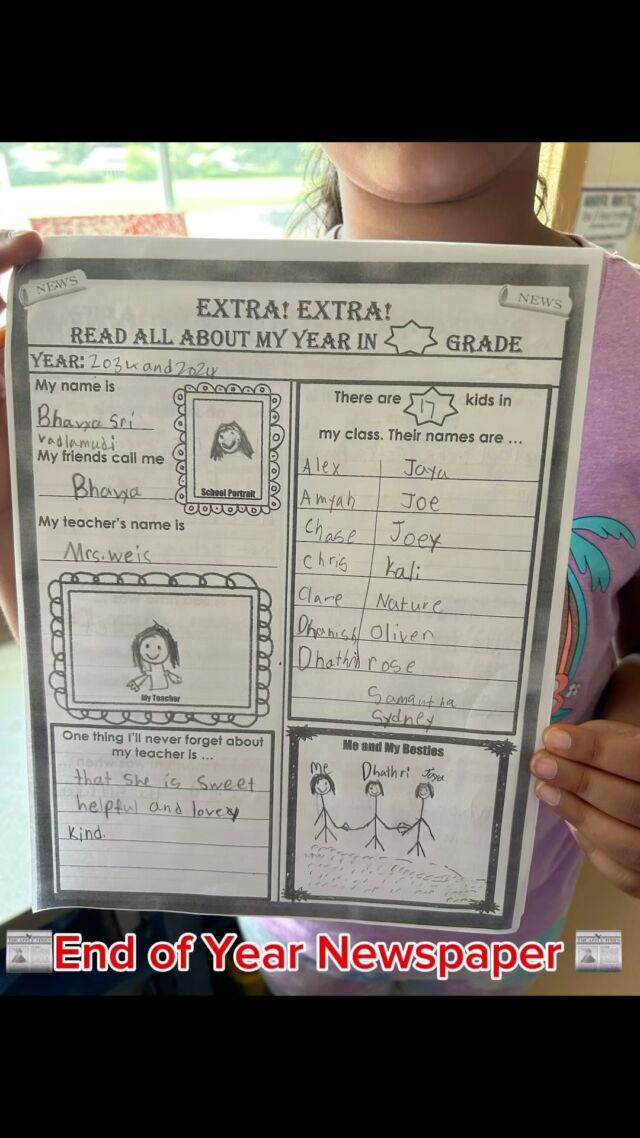 NEWS
NEWS
EXTRA! EXTRA!
READ ALL ABOUT MY YEAR IN GRADE
YEAR: and 2024
My name is
Bhavya Sri
vadlamudi
My friends call me
Bhavya
School Portrait
My teacher's name is
Mrs. weis
My Teacher
One thing I'll never forget about
my teacher is ...
that she is sweet
helpful and lovey
kind.
There are 17 kids in
my class. Their names are ...
Alex Jaya
Amyah Joe
Chase Joey
Chris Kali
Clare Nature
Dhanish Oliver
Dhathri rose
Samantha
Sydney
Me and My Besties
Me Dhathri Jaya
End of Year Newspaper